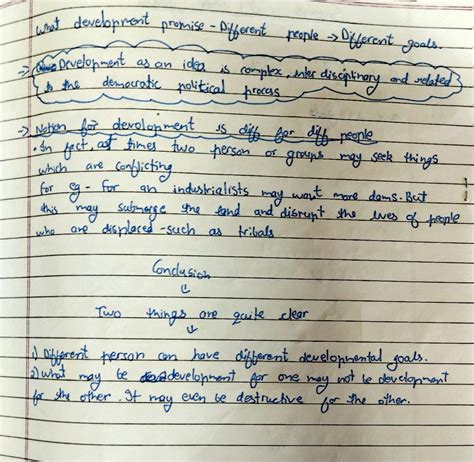 What development promise - Different people → Different goals.
⇒ Development as an idea is complex, inter disciplinary and related
to the democratic political process
→ Notion for development is diff for diff people
• In fact, at times two person or groups may seek things
which are conflicting
for eg - for an industrialists may want more dams. But
this may submerge the land and disrupt the lives of people
who are displaced - such as tribals
Conclusion
↓
Two things are quite clear
↓
1) Different person can have different developmental goals.
2) What may be development for one may not be development
for the other. It may even be destructive for the other.